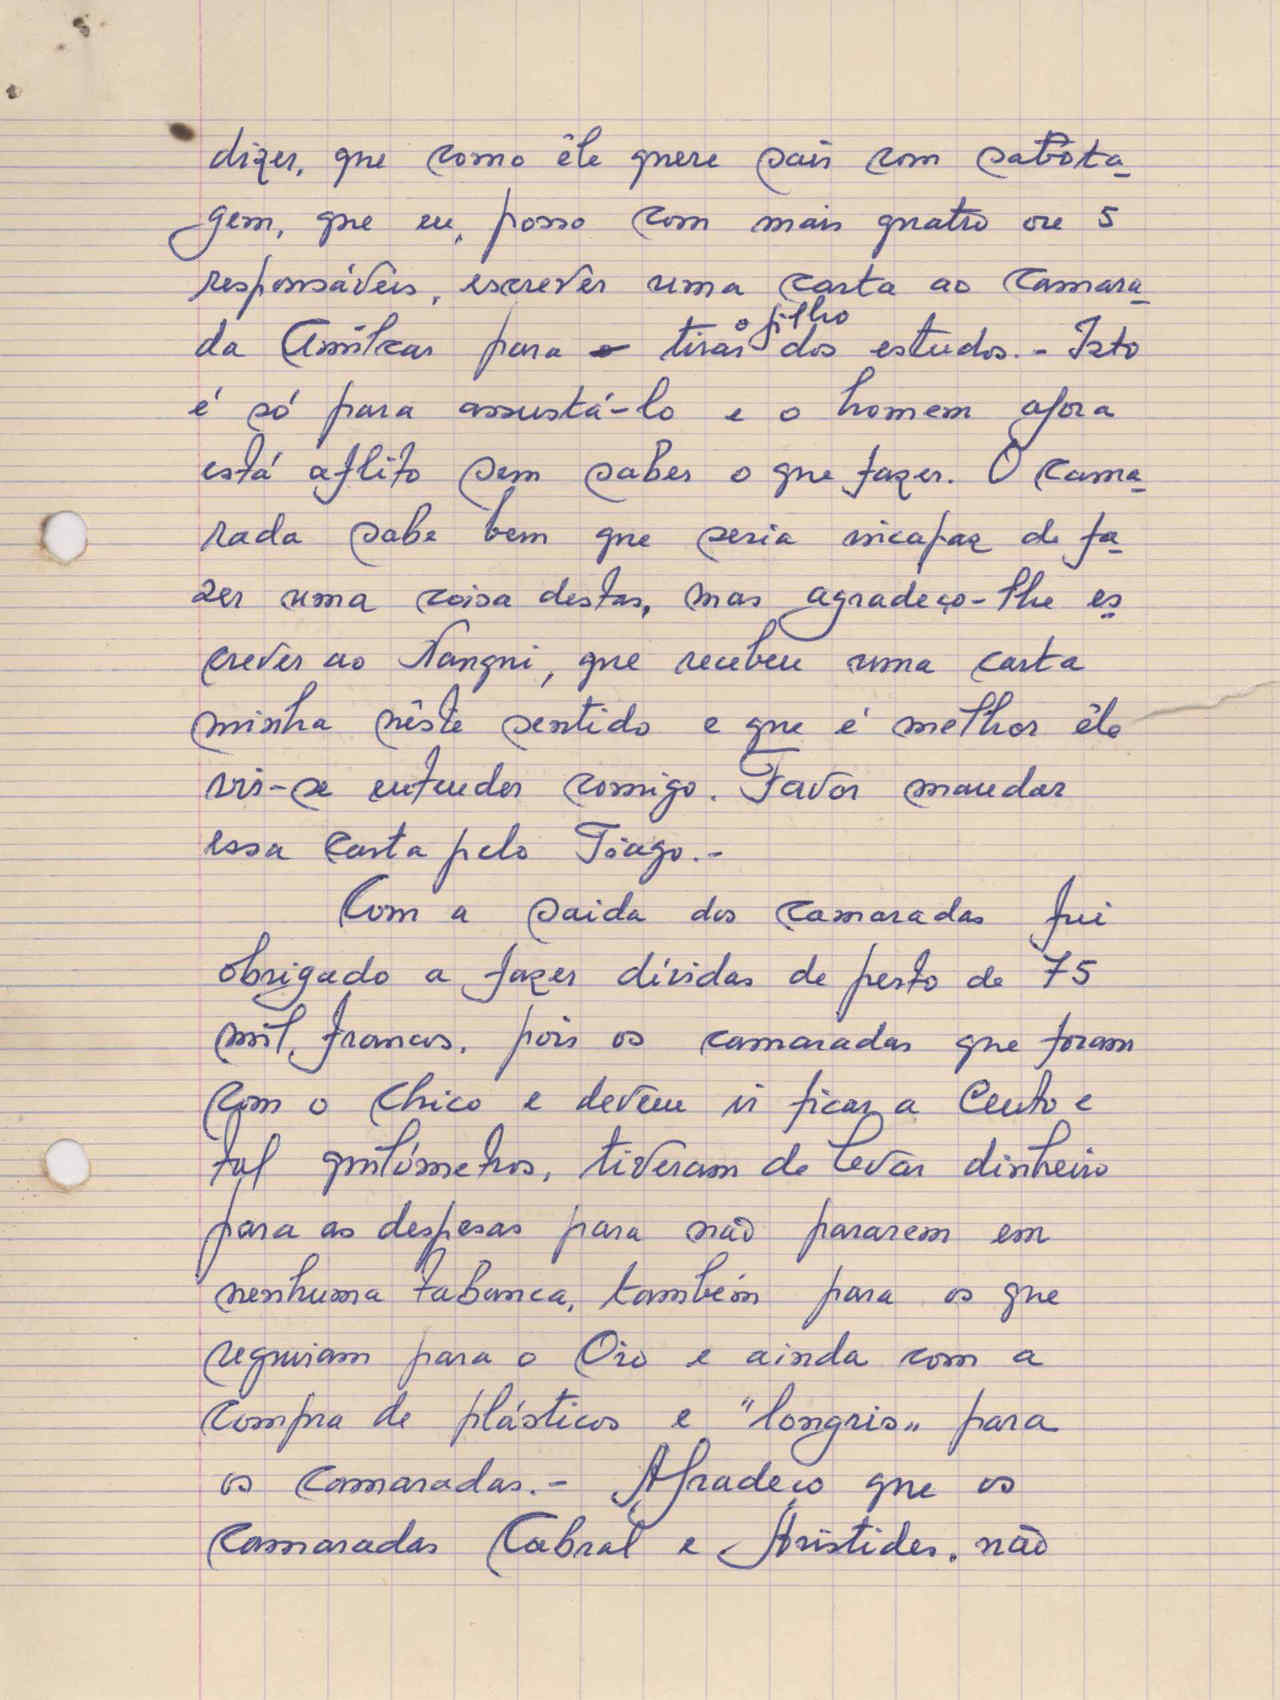 dizer, que como êle quere sair com sabota-
gem, que eu, posso com mais quatro ou 5
responsáveis, escrever uma carta ao camara-
da Amílcar para tirar o filho dos estudos.- Isto
é só para assustá-lo e o homem agora
está aflito sem saber o que fazer. O cama-
rada sabe bem que seria incapaz de fa-
zer uma coisa destas, mas agradeço-lhe es-
crever ao Nangui, que recebeu uma carta
minha nêste sentido e que é melhor êle
vir-se entender comigo. Favor mandar
essa carta pelo Tiago.-
Com a saida dos camaradas fui
obrigado a fazer dívidas de perto de 75
mil, francos, pois os camaradas que foram
com o Chico e devem ir ficar a Cento e
tal quilómetros, tiveram de levar dinheiro
para as despesas para não pararem em
nenhuma tabanca, também para os que
seguiam para o Oio e ainda com a
compra de plásticos e "longris" para
os camaradas.- Agradeço que os
camaradas Cabral e Aristides, não